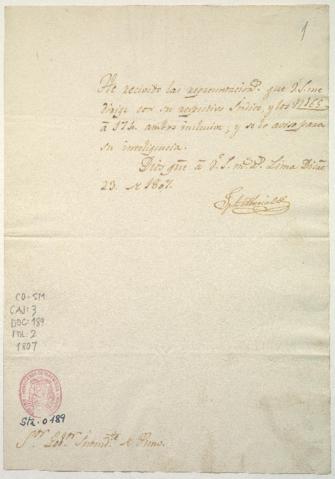 1
He recivido las representacion.s que V.S. me
dirige con su respectivo Indice, y los N.
á 174. ambos inclusive, y se lo aviso para
su inteligencia.
Dios gue. á V.S. m.s a.s Lima
23. de 1807.
CO-SM
CAJ: 3
DOC: 189
FOL: 2
1807
S12-0189
S.or Gob.or Intend.te de Puno.